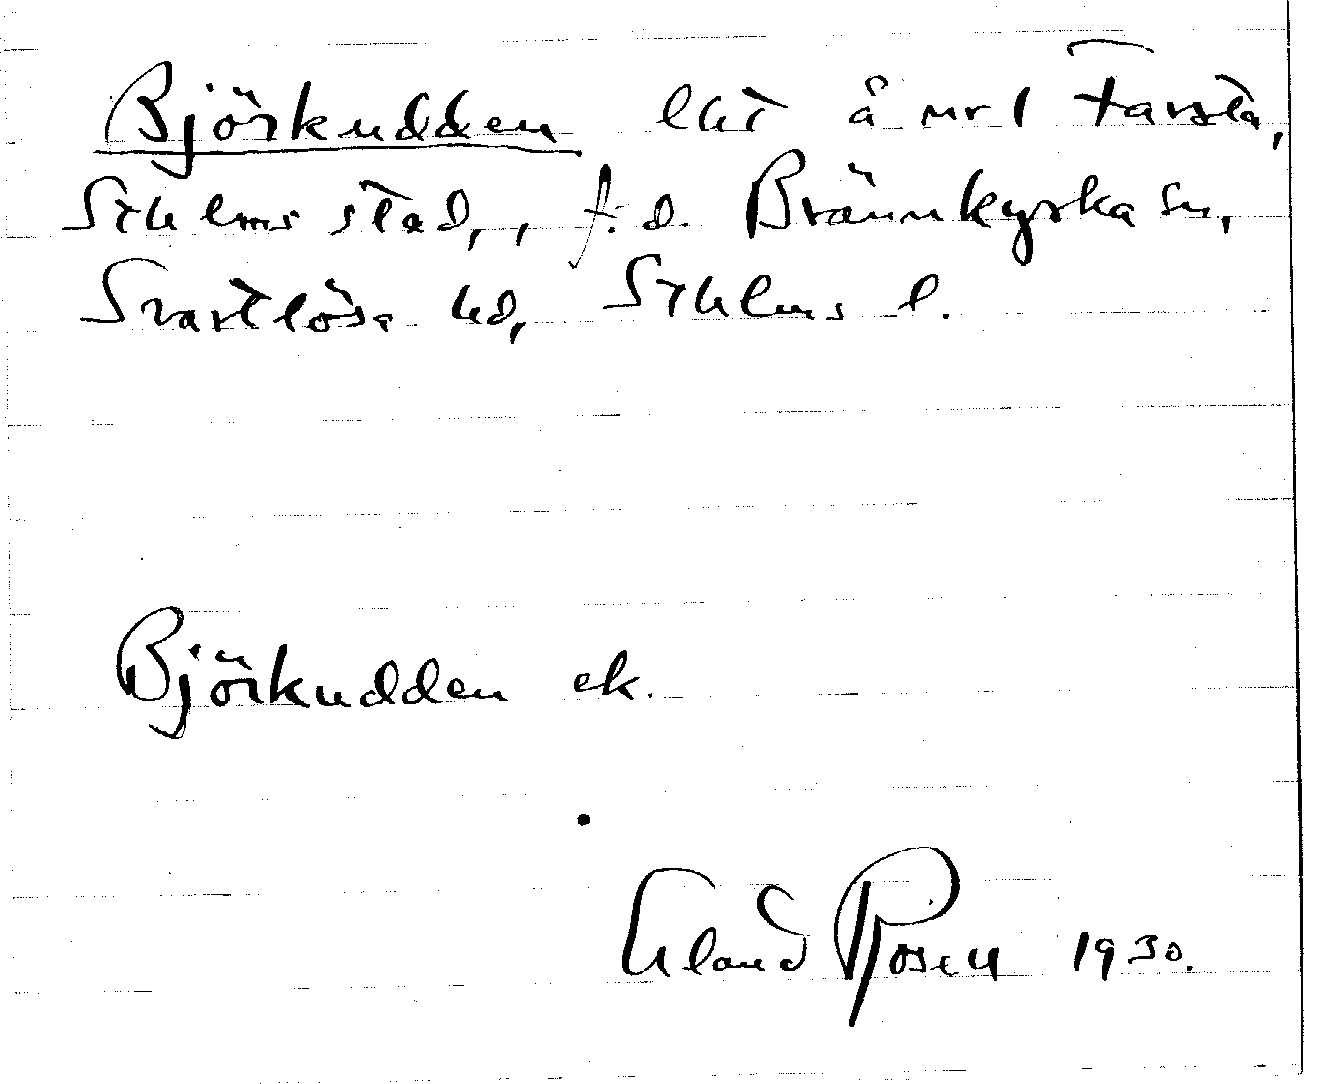 Björkudden lht å nr 1 Farsta,
Sthlms stad, , f. d. Brännkyrka sn,
Svartlösa hd, Sthlms l.
Björkudden ek.
Eland Rosell 1930.